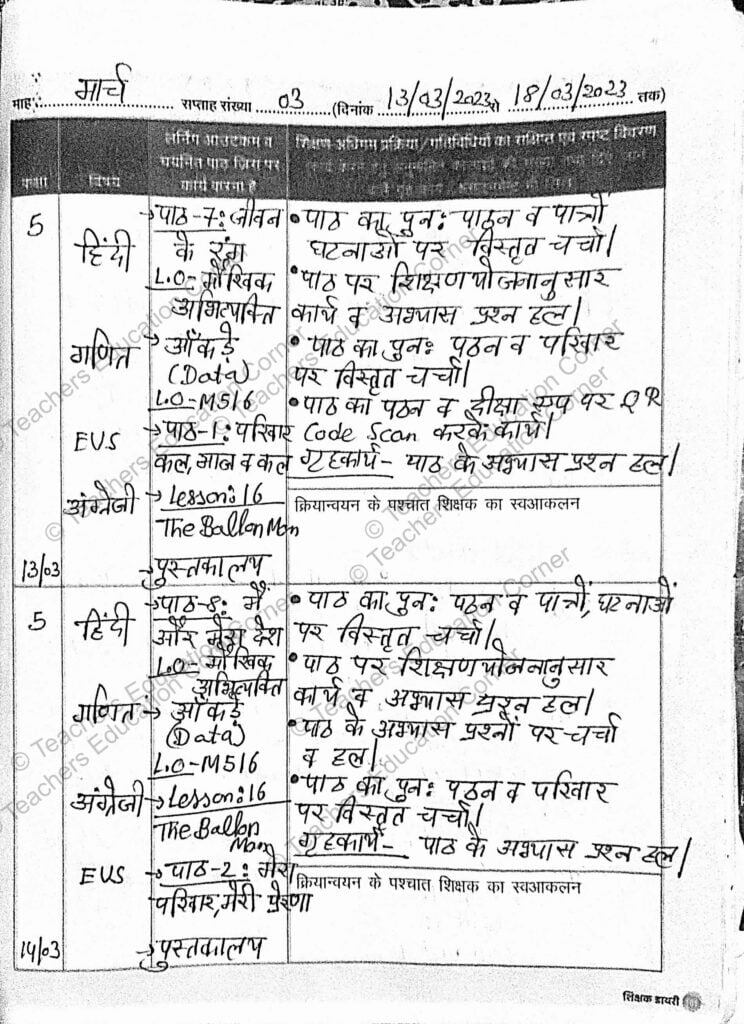 माह: मार्च सप्ताह संख्या 03 (दिनांक 13/03/2023 से 18/03/2023 तक)
कक्षा
विषय
लर्निंग आउटकम व
चयनित पाठ जिस पर
कार्य करना है
शिक्षण अधिगम प्रक्रिया/गतिविधियों का संक्षिप्त एवं स्पष्ट विवरण
5
हिंदी
→पाठ-7: जीवन
के रंग
L.O- मौखिक
अभिव्यक्ति
गणित → आँकड़े
(Data)
L.O-M516
EVS → पाठ-1: परिवार
कल, आज व कल
अंग्रेजी → Lesson:16
The Ballon Man
13/03
→पुस्तकालय
• पाठ का पुन: पाठन व पात्रों
घटनाओं पर विस्तृत चर्चा।
• पाठ पर शिक्षणयोजनानुसार
कार्य व अभ्यास प्रश्न हल।
• पाठ का पुन: पठन व परिवार
पर विस्तृत चर्चा।
• पाठ का पठन व दीक्षा एप पर QR
Code Scan करके कार्य।
गृहकार्य- पाठ के अभ्यास प्रश्न हल।
क्रियान्वयन के पश्चात शिक्षक का स्वआकलन
5
हिंदी
→पाठ-8: मैं
और मेरा देश
L.O- मौखिक
अभिव्यक्ति
गणित → आँकड़े
(Data)
L.O-M516
अंग्रेजी → Lesson:16
The Ballon
Man
EVS → पाठ-2: मेरा
परिवार, मेरी प्रेरणा
14/03
→पुस्तकालय
• पाठ का पुन: पठन व पात्रों, घटनाओं
पर विस्तृत चर्चा।
• पाठ पर शिक्षणयोजनानुसार
कार्य व अभ्यास प्रश्न हल।
• पाठ के अभ्यास प्रश्नों पर चर्चा
व हल।
• पाठ का पुन: पठन व परिवार
पर विस्तृत चर्चा।
गृहकार्य- पाठ के अभ्यास प्रश्न हल।
क्रियान्वयन के पश्चात शिक्षक का स्वआकलन
शिक्षक डायरी
© Teachers Education Corner
© Teachers Education Corner
© Teachers Education Corner
© Teachers Education Corner
© Teachers Education Corner
© Teachers Education Corner